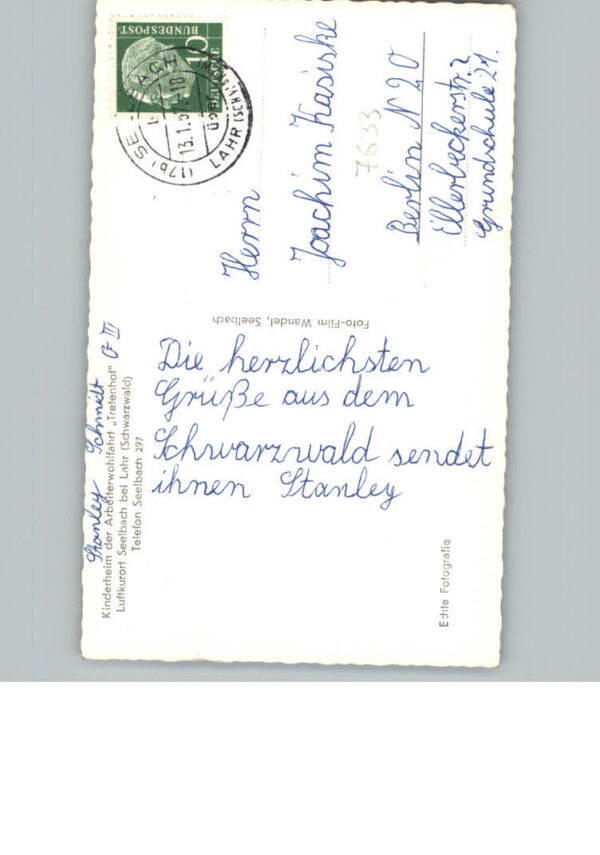 Die herzlichsten
Grüße aus dem
Schwarzwald sendet
ihnen Stanley
Herrn
Joachim Kasiske
Berlin N 20
Ellerbeckerstr.
Grundschule 21.
7633
Stanley Schmidt
Kinderheim der Arbeiterwohlfahrt „Tretenhof"
Luftkurort Seelbach bei Lahr (Schwarzwald)
Telefon Seelbach 297
Foto-Film Wandel, Seelbach
Echte Fotografie
DEUTSCHE
BUNDESPOST
10
(17b) SEELBACH
13.1.
LAHR (SCHWARZW)